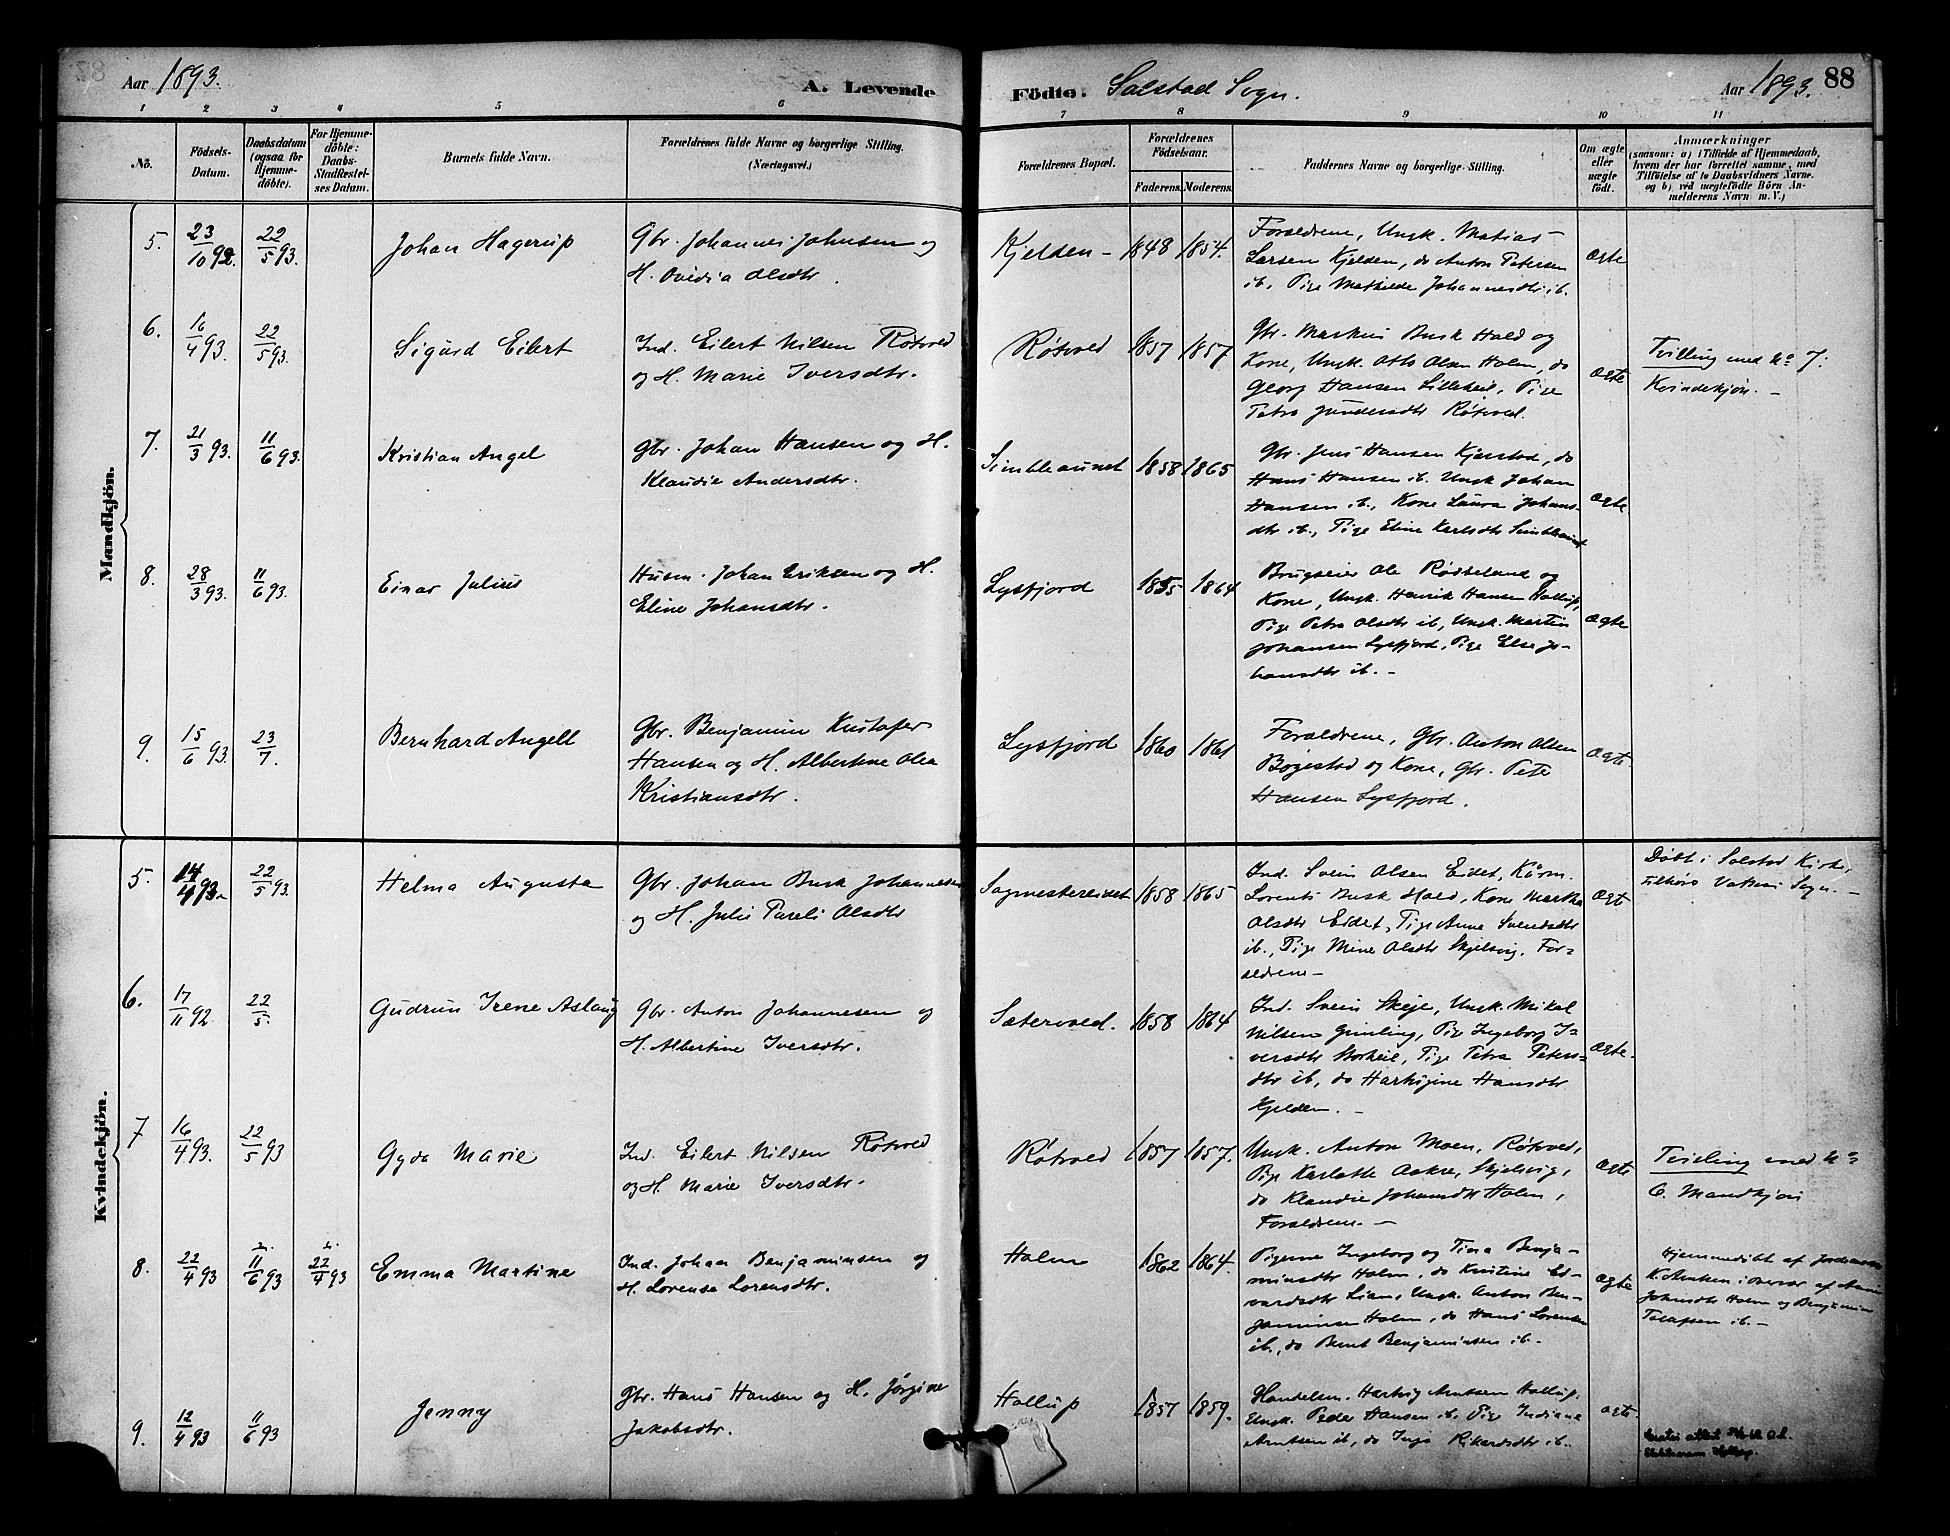 Aar 1893.
A. Levende
Födte. Solstad Sogn.
Aar 1893.
88
1 2 3 4 5 6 7 8 9 10 11
No.
Födsels-
Datum.
Daabsdatum
(ogsaa for
Hjemme-
döbte).
For Hjemme-
döbte:
Daabs-
Stadfæstel-
ses Datum.
Barnets fulde Navn.
Forældrenes fulde Navne og borgerlige Stilling.
(Næringsvei.)
Forældrenes Bopæl.
Forældrenes
Födselsaar.
Faderens. Moderens.
Faddernes Navne og borgerlige Stilling.
Om ægte
eller
uægte
födt.
Anmærkninger
(saasom: a) i Tilfælde af Hjemmedaab,
hvem der har forrettet samme, med
Tilföielse af to Daabsvidners Navne.
og b) ved uægtefödte Börn An-
melderens Navn m. V.)
Mandkjön.
5. 23/10 92. 22/5 93. Johan Hagerup
Gbr. Johannes Johnsen og
H. Ovidia Olsdtr.
Kjelden - 1848 1854.
Forældrene, Ungk. Matias
Larsen Kjelden, do Anton Petersen
ib, Pige Mathilde Johannesdtr ib.
Ægte
6. 16/4 93. 22/5 93. Sigurd Eilert
Ind. Eilert Nilsen Røtvold
og H. Marie Iversdtr.
Røtvold 1857 1857
Gbr. Markus Busk Hald og
Kone, Ungk. Otto Olsen Holm, do
Georg Hansen Lilleheil, Pige
Petra Gundersdtr Røtvold.
Ægte
Tvilling med No 7.
Kvindekjøn. -
7. 21/3 93. 11/6 93. Kristian Angel
Gbr. Johan Hansen og H.
Klaudie Andersdtr.
Simbleaunet 1858 1865
Gbr. Jens Hansen Kjærstad, do
Hans Hansen ib. Ungk Johan
Hansen ib., Kone Laura Johans-
dtr ib., Pige Eline Karlsdtr Simbleaunet
Ægte
8. 28/3 93. 11/6 93. Einar Julius
Husm. Johan Eriksen og H.
Eline Johansdtr.
Lysfjord 1855 1864
Brugseier Ole Rødseland og
Kone, Ungk. Henrik Hansen Hollup,
Pige Petra Olsdtr ib, Ungk. Martin
Johansen Lysfjord, Pige Else Jo-
hansdtr ib. -
Ægte
9. 15/6 93. 23/7. Bernhard Angell
Gbr. Benjamin Kristofer
Hansen og H. Albertine Olea
Kristiansdtr.
Lysfjord 1860 1861
Forældrene, Gbr. Anton Olsen
Bøgestad og Kone, Gbr. Peter
Hansen Lysfjord.
Ægte
Kvindekjön.
5. 14/4 93. 22/5 93. Helma Augusta
Gbr. Johan Busk Johannesen
og H. Julie Pareli Olsdtr
Sagmestereidet 1858 1865
Ind. Svein Olsen Eidet, Kårm.
Lorents Busk Hald, Kone Martha
Olsdtr Eidet, Pige Anna Sveinsdtr
ib., Pige Mine Olsdtr Skjelsvig. For-
ældrene -
Ægte
Døbt i Solstad Kirke,
tilhører Vatsaas Sogn. -
6. 17/11 92. 22/5. Gudrun Irene Aslaug
Gbr. Anton Johannesen og
H. Albertine Iversdtr.
Sætervold. 1858 1864
Ind. Svein Skeje, Ungk. Mikal
Nilsen Grimling, Pige Ingeborg I-
versdtr Storheil, Pige Petra Peters-
dtr ib, do Harksgine Hansdtr
Kjelden. -
Ægte.
7 16/4 93. 22/5 93 Gyda Marie
Ind. Eilert Nilsen Røtvold
og H. Marie Iversdtr.
Røtvold 1857 1857.
Ungk. Anton Moen, Røtvold,
Pige Karlotte Aakre, Skjelsvig,
do Klaudie Johansdtr Holm,
Forældrene. -
Ægte
Tvilling med No
6. Mandkjøn
8. 22/4 93 11/6 93 22/4 93 Emma Martine
Ind. Johan Benjaminsen og
H. Lorense Lorensdtr.
Holm 1862 1864.
Pigerne Ingeborg og Tina Benja-
minsdtr Holm, do Kristine Ed-
vardsdtr Lian, Ungk. Anton Ben-
jaminsen Holm, do Hans Lorensen
ib., do Bernt Benjaminsen ib. -
Ægte
Hjemmedøbt af Jordemoder
K. Arntsen i Overvær af
Johnsdtr Holm og Benjamin
ib. -
9. 12/4 93 11/6 93 Jenny
Gbr. Hans Hansen og H. Jørgine
Jakobsdtr.
Hollup 1857 1859.
Handelsm. Hartvig Arntsen Hollup.
Ungk. Peder Hansen ib. Pige Indiane
Arntsen ib, do Inga Rikardsdtr ib.
ægte